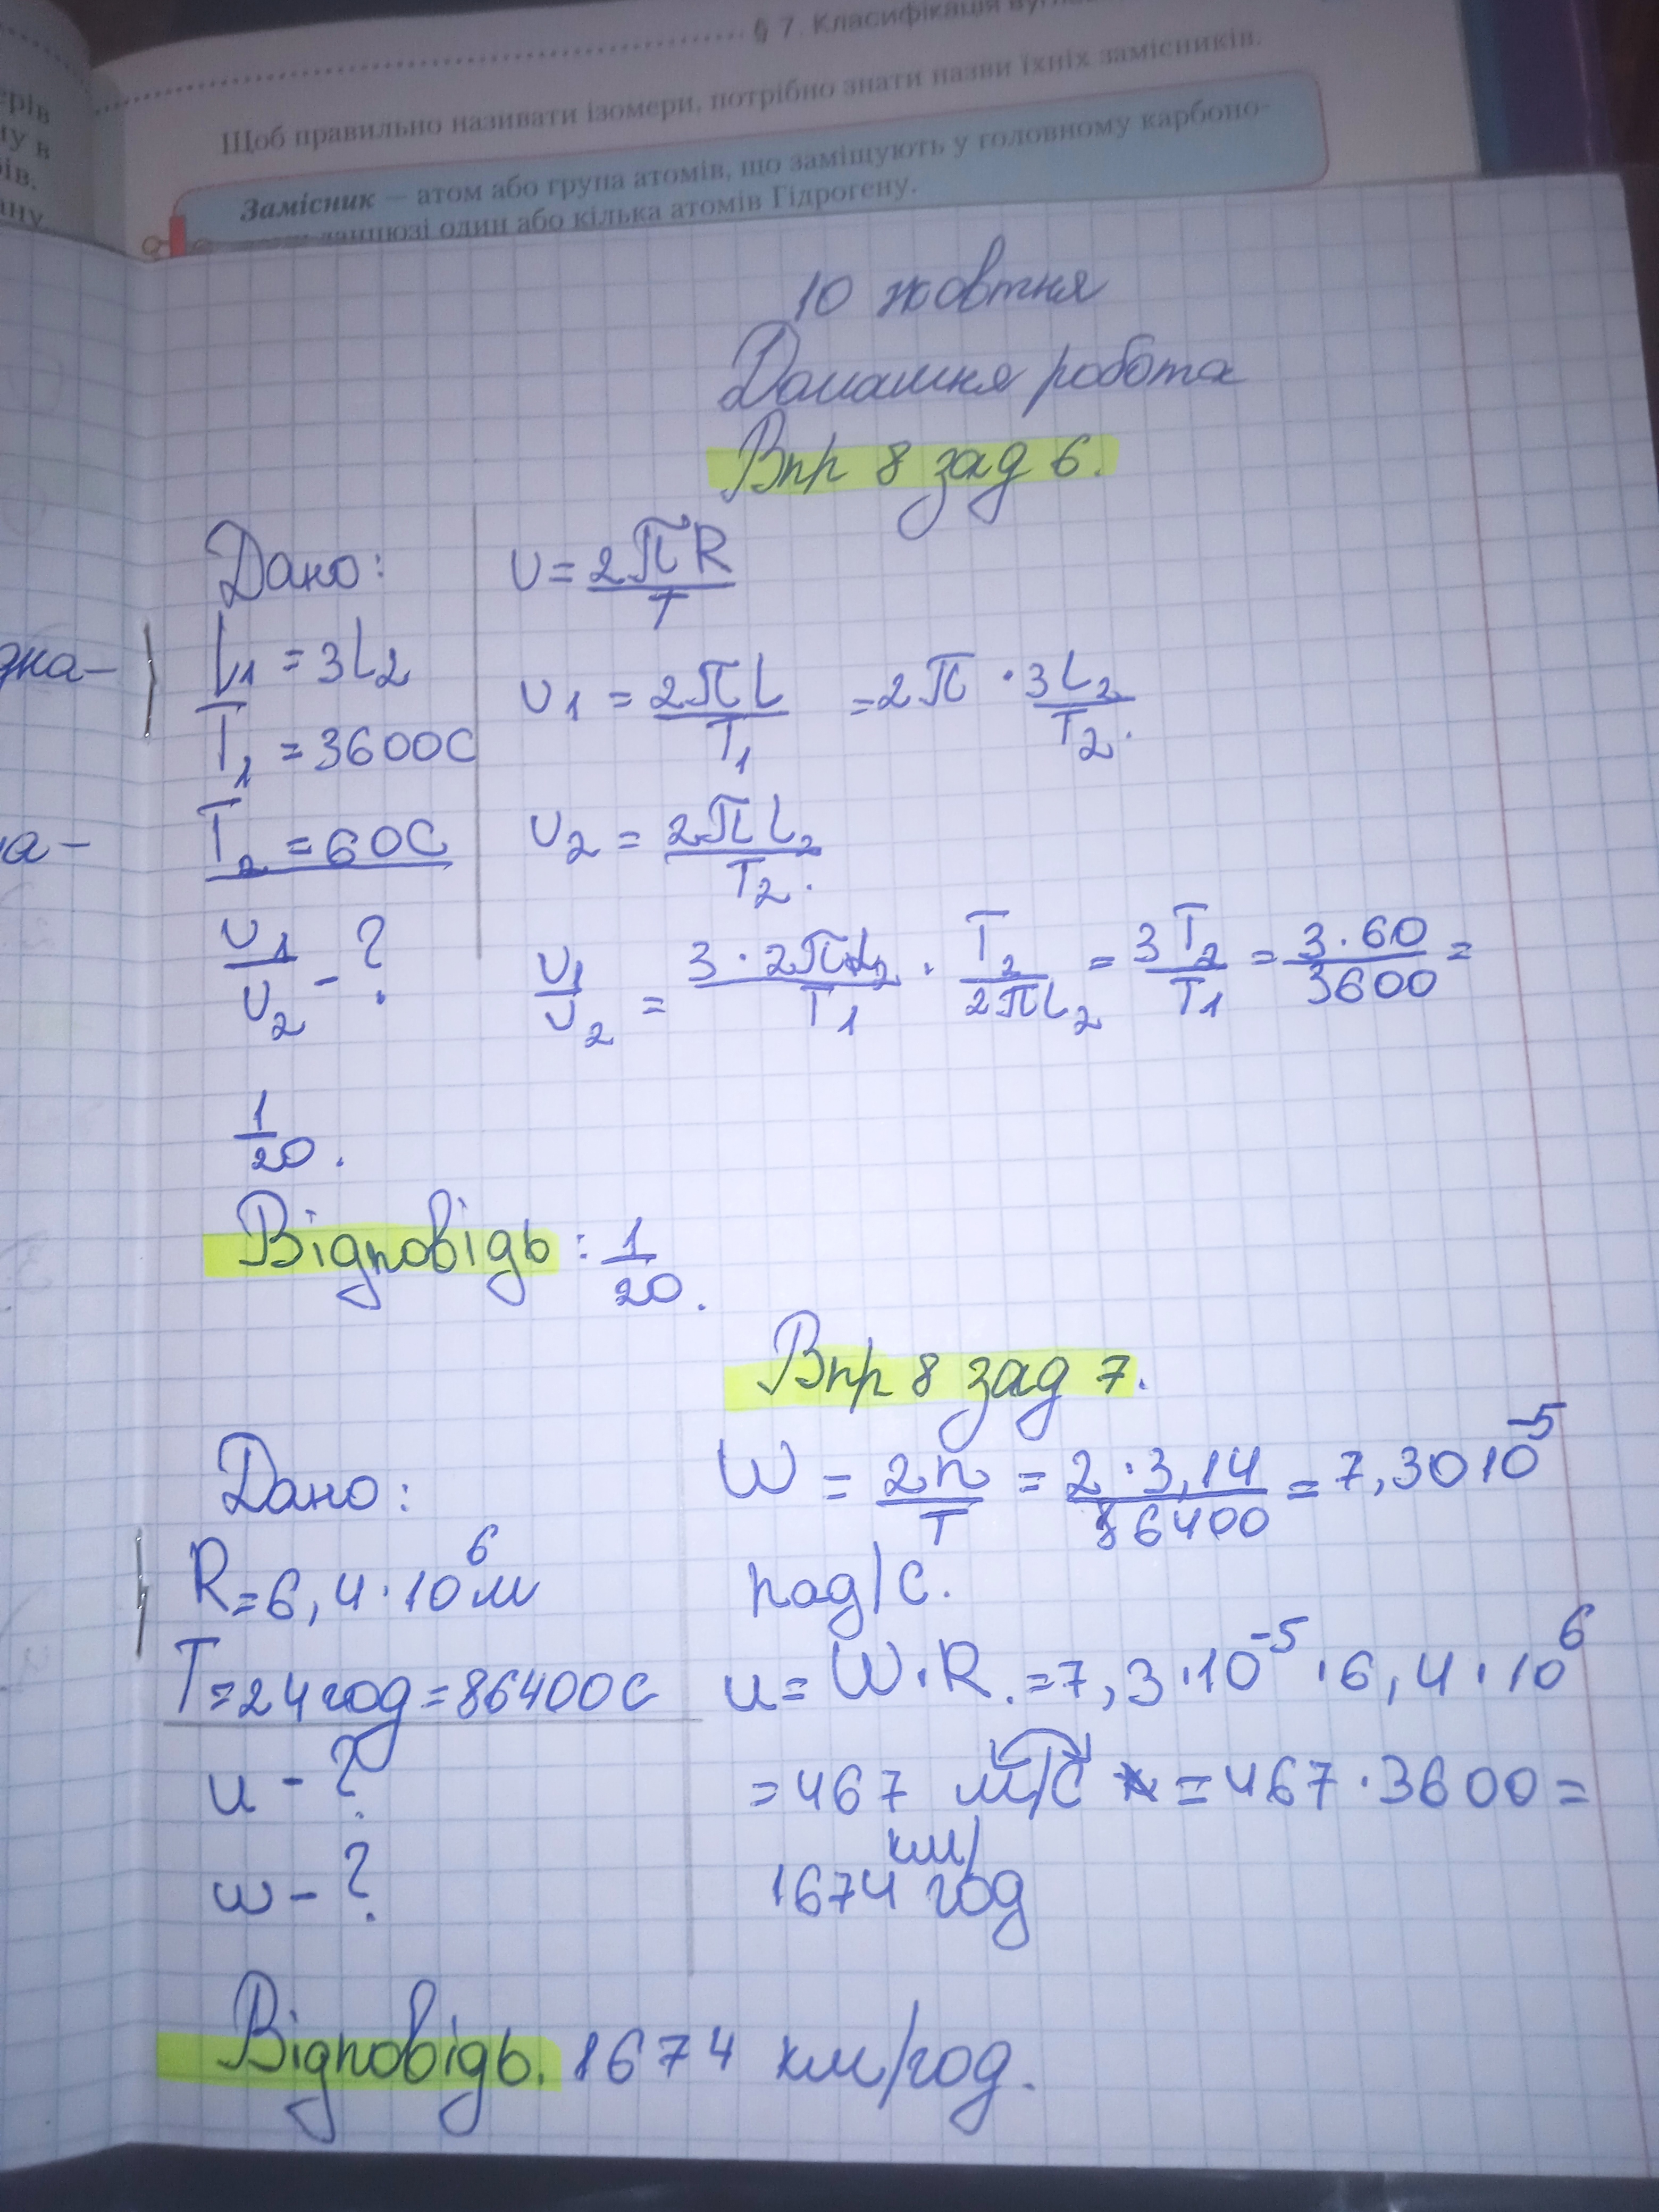 § 7. Класифікація
Щоб правильно називати ізомери, потрібно знати назви їхніх замісників.
Замісник — атом або група атомів, що заміщують у головному карбоно-
ланцюзі один або кілька атомів Гідрогену.
10 жовтня
Домашня робота
Впр 8 зад 6.
Дано:
L₁ = 3L₂
T₁ = 3600с
T₂ = 60с
υ₁/υ₂ - ?
υ = 2πR/T
υ₁ = 2πL/T₁ = 2π · 3L₂/T₂.
υ₂ = 2πL₂/T₂.
υ₁/υ₂ = 3·2πL₂/T₁ · T₂/2πL₂ = 3T₂/T₁ = 3·60/3600 =
1/20.
Відповідь: 1/20.
Впр 8 зад 7.
Дано:
R = 6,4·10⁶м
T = 24 год = 86400с
u - ?
w - ?
W = 2π/T = 2·3,14/86400 = 7,3010⁻⁵
рад/с.
u = W·R. = 7,3·10⁻⁵·6,4·10⁶
= 467 м/с = 467·3600 =
1674 км/год
Відповідь. 1674 км/год.